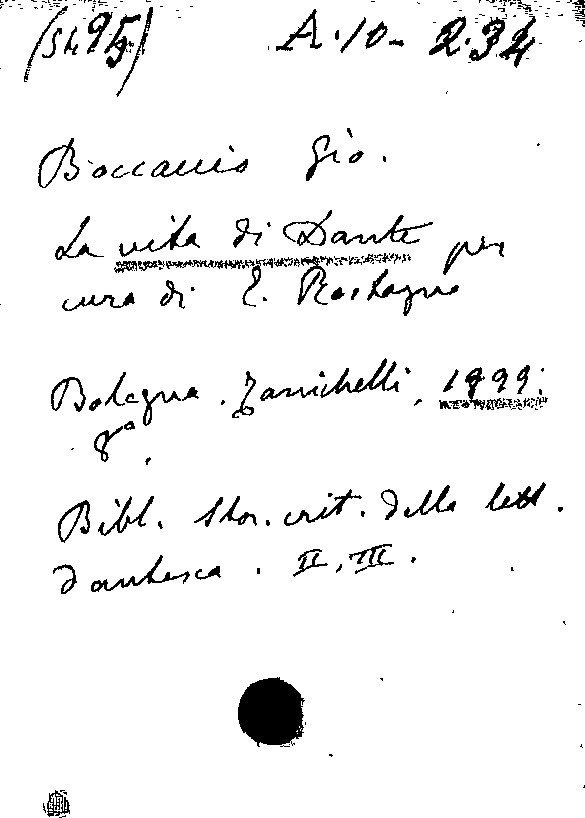 A.10-2.34
Boccaccio Gio.
La vita di Dante per
cura di E. Rostagno
Bologna. Zanichelli, 1899.
8°.
Bibl. stor. crit. della lett.
dantesca. II, III.